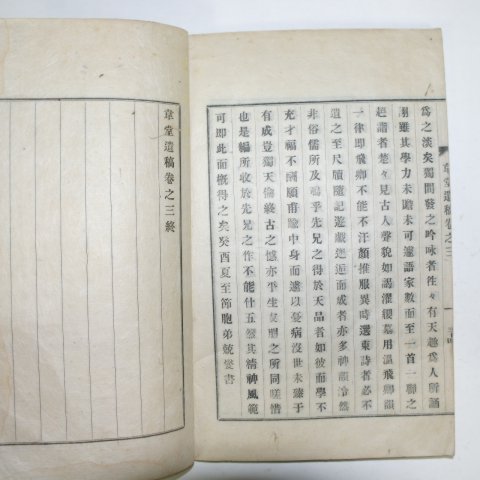 爲之淡矣獨間發之吟咏者徃々有天趣爲人所誦
雖其學力未贍未可遽語家數而至一首一聯之
超詣者楚々見古人聲貌如謁濯纓墓用溫飛卿韻
一律即飛卿不能不汗顏推服異時選東詩者必不
遺之至尺牘隨記遊戱迆逗而或者亦多神韻泠然
非俗儒所及嗚乎先兄之得於天品者如彼而學不
充才福不酬願甫踰中身而遽以憂病沒世未臻于
有成豈獨天倫終古之憾亦平生交期之所同嗟惜
也是編所收於先兄之作不能什五然其淸神風範
可即此而槪得之矣癸酉夏至節胞弟兢燮書
韋堂遺稿卷之三
韋堂遺稿卷之三終